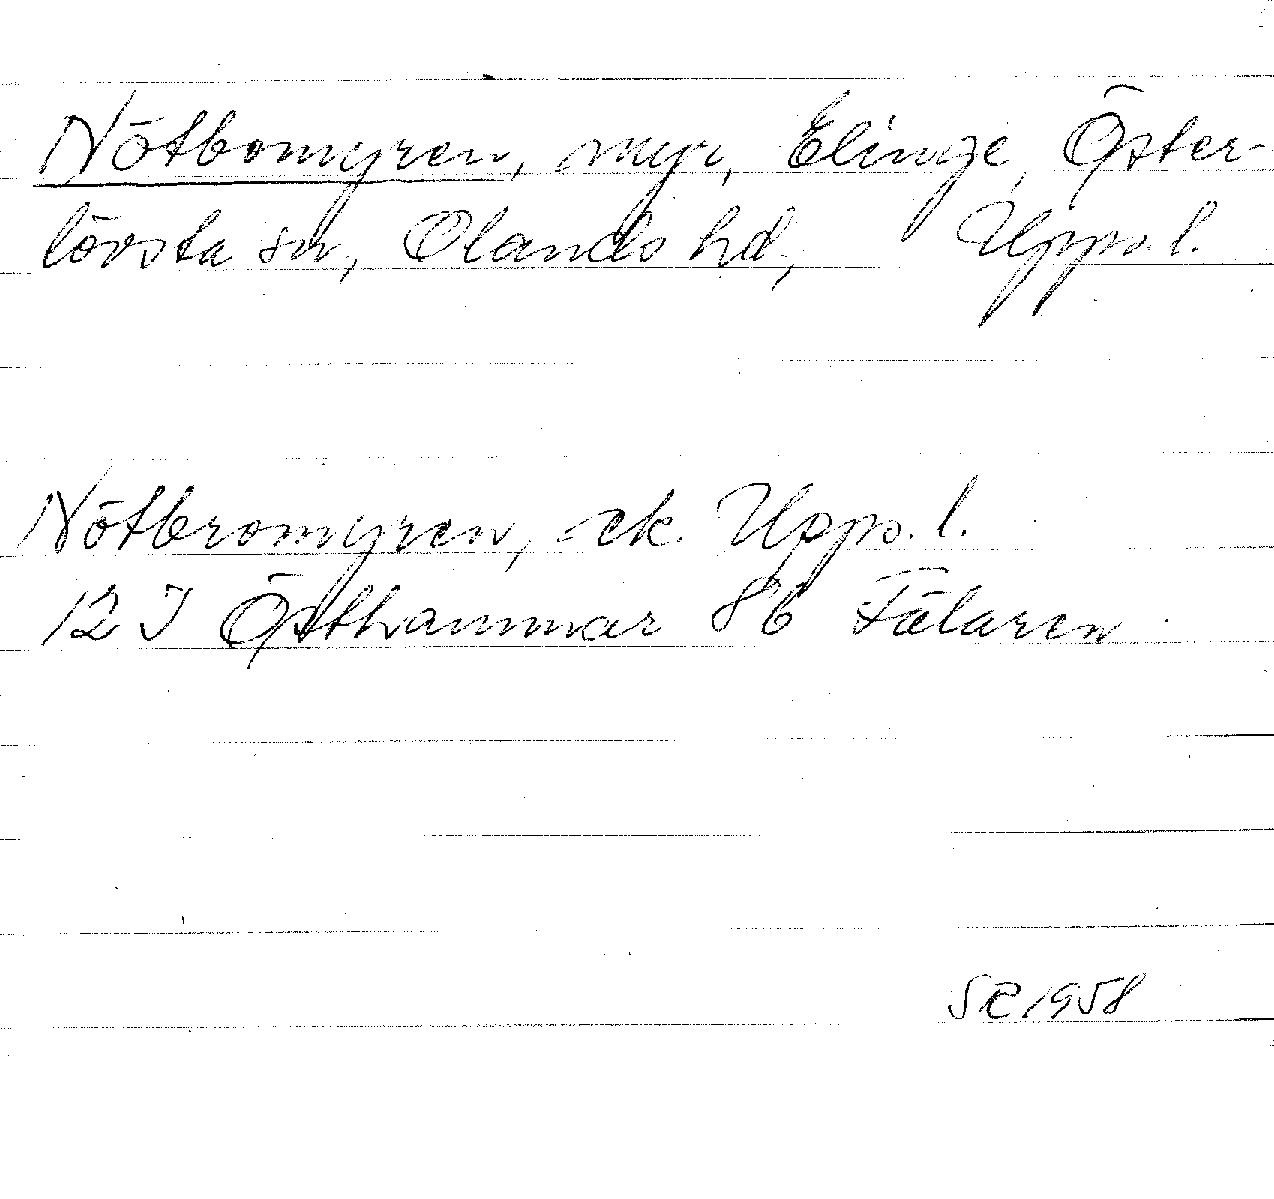 Nötbomyren, myr, Elinge, Öster-
lövsta sn, Olands hd, Upps.l.
Nötbromyren, ek. Upps.l.
12 I Östhammar 8b Fälaren
SR 1958